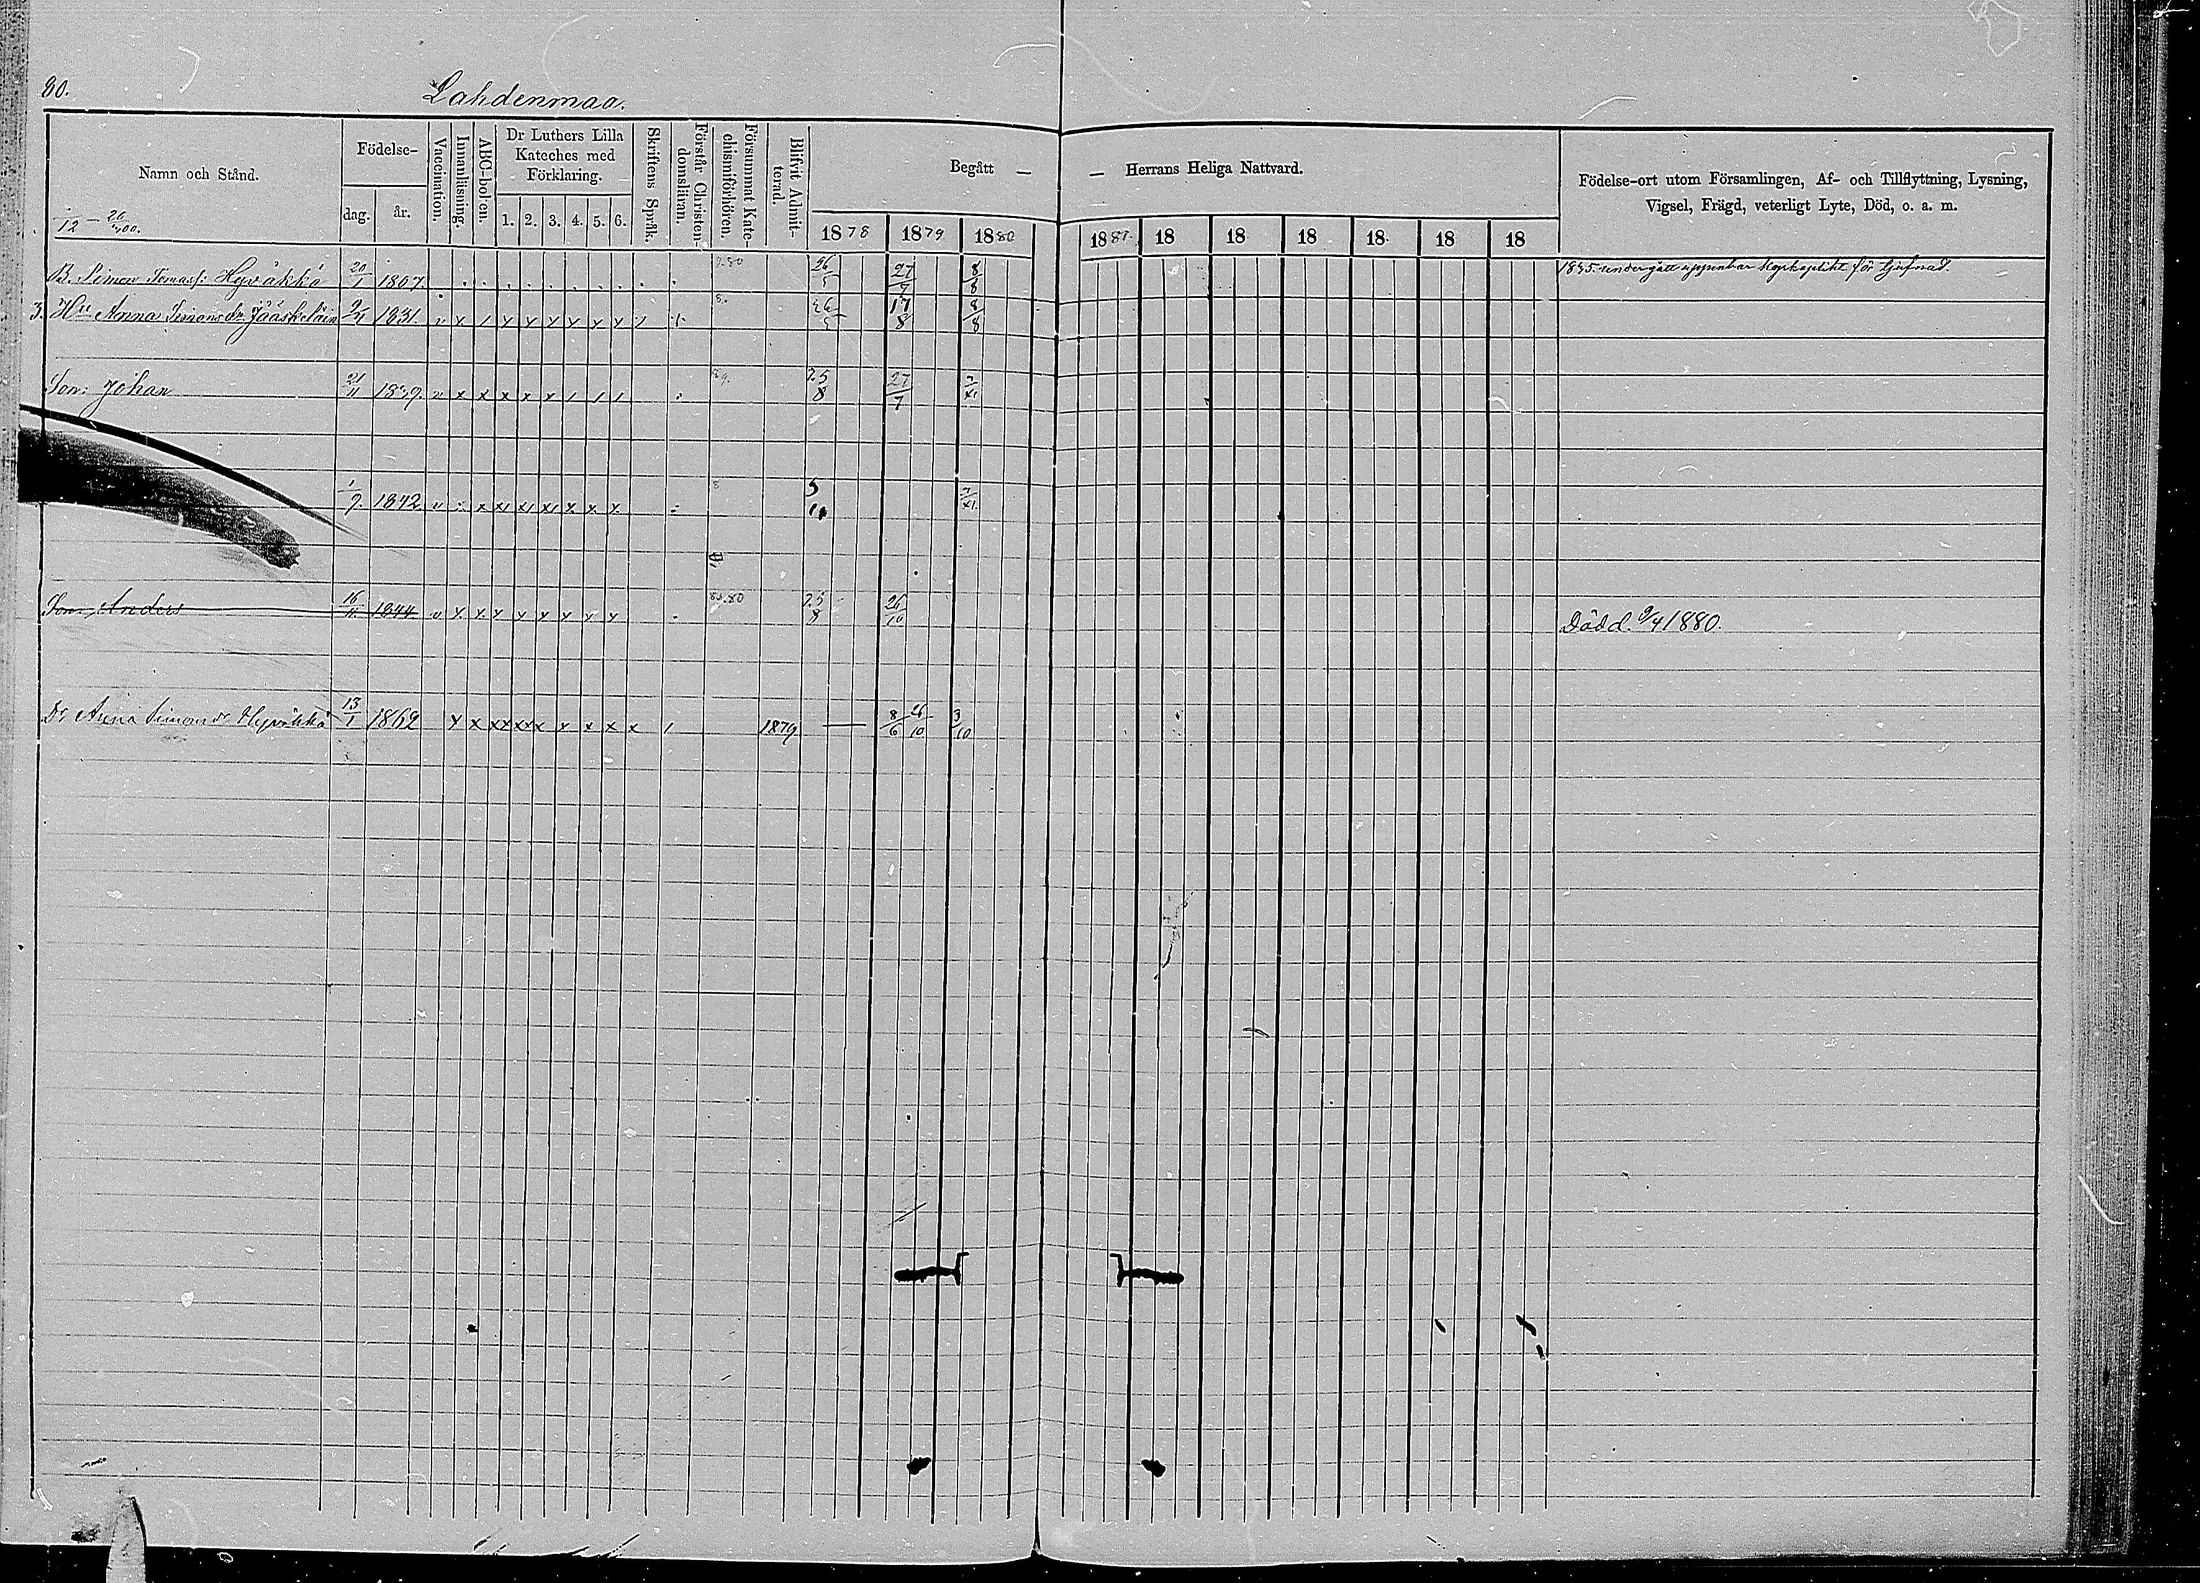 80.
Lahdenmaa.
Namn och Stånd.
Födelse-
dag. år.
Vaccination.
Innanläsning.
ABC-boken.
Dr Luthers Lilla
Kateches med
Förklaring.
1. 2. 3. 4. 5. 6.
Skriftens Språk.
Förstår Christen-
domsläran.
Försummat Kate-
chismiförhören.
Blifvit Admit-
terad.
Begått — — Herrans Heliga Nattvard.
1878 1879 1880 1881 18 18 18 18 18 18
Födelse-ort utom Församlingen, Af- och Tillflyttning, Lysning,
Vigsel, Frägd, veterligt Lyte, Död, o. a. m.
B. Simon Tomass: Hyväkkä 20/1 1807 26/5 27/7 8/8 undergått uppenbar kyrkoplikt för tjufnad.
3. Hu Anna Simons dr Jääskeläin 1831. 26/5 17/8 8/8
Son: Johan 21/11 25/8 27/7 7/XI
1/9. 1842 7/XI
Son: Anders 16/11 1844 80 25/8 26/10 Död d. 9/4 1880.
Dr Anna Simons dr Hyväkkä 13/1 1862 1879 — 8/6 26/10 3/10